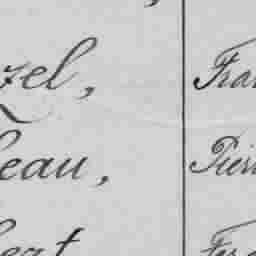 zel, Fran
eau, Pierr
eat Fer